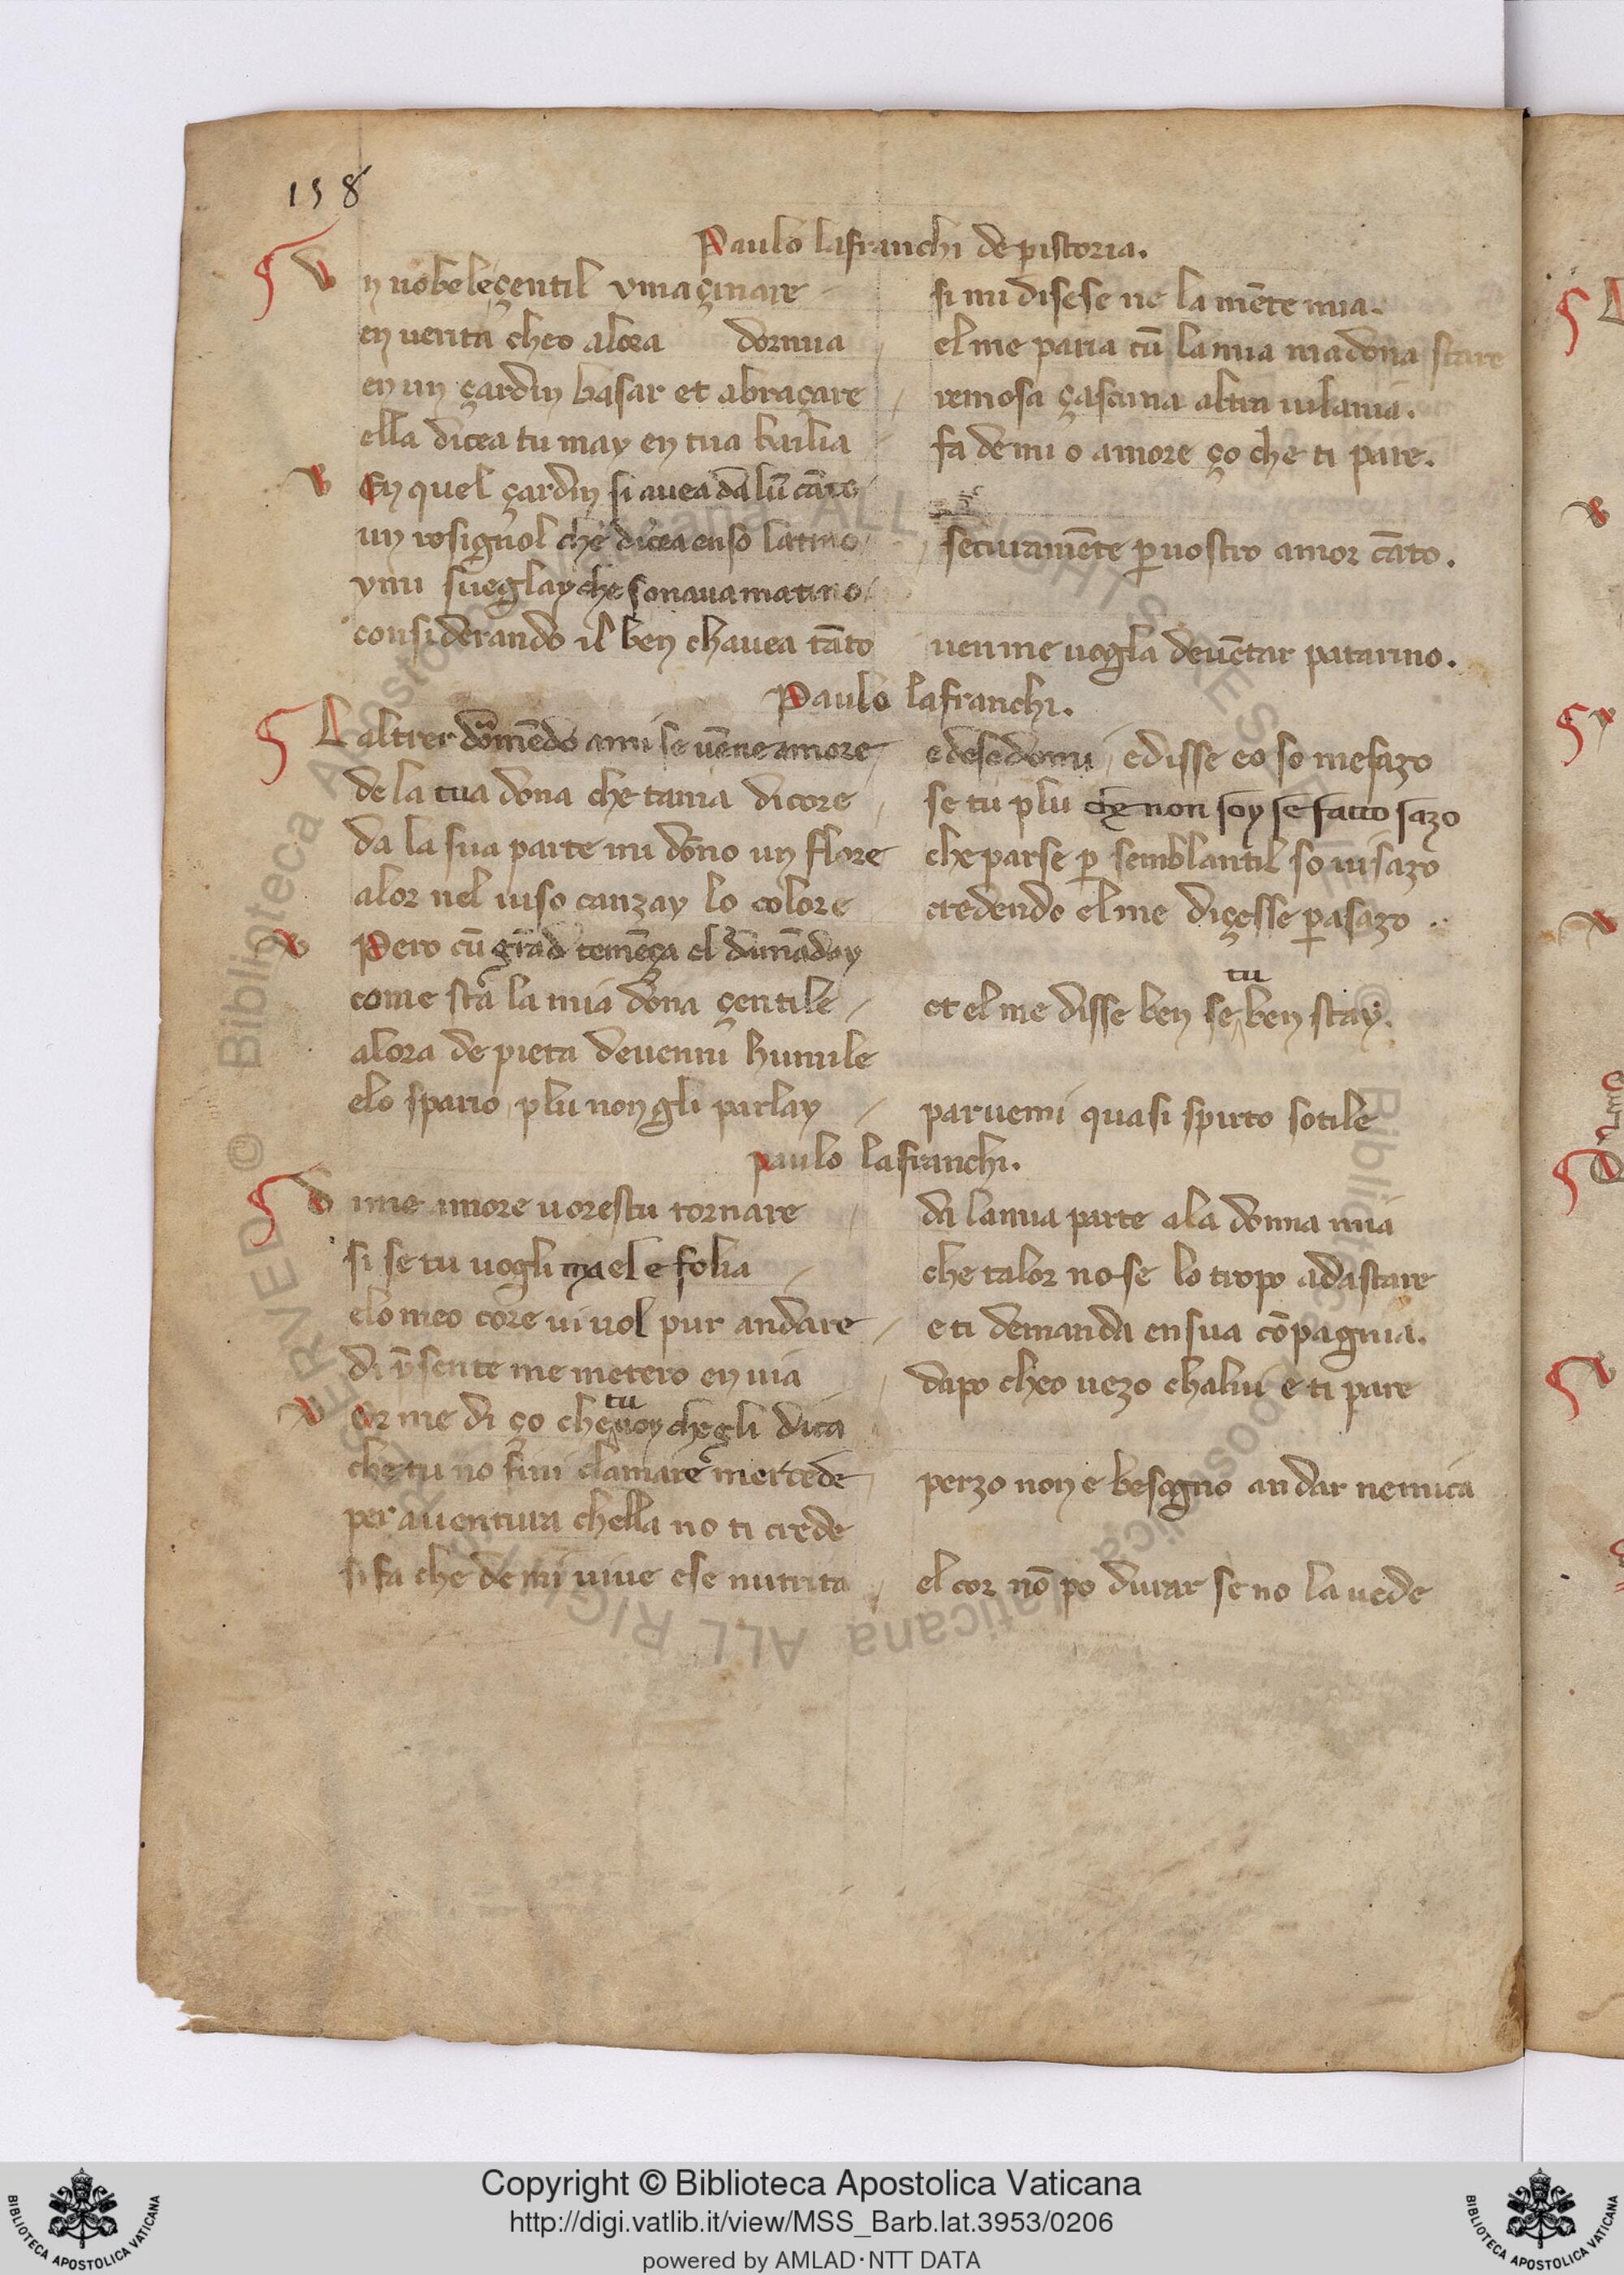 158
Paulo lafranchi de pistoria.
Un nobele çentil ymaçinare si mi discse ne la mēte mia.
en uerita cheo alora dormia el me paria cū la mia madona stare
en un çardin basar et abraçare remosa çascuna altra uilania.
ella dicea tu may en tua bailia fa de mi o amore ço che ti pare.
En quel çardin si auea da lū cāto
un rosignol che dicea en so latino securamēte p uostro amor cāto.
ymi sueglay che sonaua matino
considerando il ben chauea tāto uenme uogla deuētar patarino.
Paulo lafranchi.
Laltrer dormēdo a mi se uēne amore e deseдomi edisse eo so mesazo
de la tua dona che tama di core se tu plu che non soy se facto sazo
da la sua parte mi dōno un flore che parse p semblantil so uisazo
alor nel uiso canzay lo colore credendo el me diçesse p asazo
Pero cū grād temēça el dimāday
come sta la mia dōna çentile et el me disse ben se tu ben stay.
alora de pieta deuenni humile
elo spario plu non gli parlay paruemi quasi spirto sotile
paulo lafranchi.
Dime amore uorestu tornare da la mia parte a la donna mia
si se tu uogli ma el e folia che talor no se lo tropo adastare
elo meo core ui uol pur andare e ti demanda en sua cōpagnia.
di p̄sente me metero en uia dapo cheo uezo chalui e ti pare
Or me di ço che tu uoy che gli dica
che tu no fini clamare mercede perzo non e besogno andar nemica
per auentura chella no ti crede
si fa che de mi uiue e se nutrica el cor nō po durar se no la uede
Copyright © Biblioteca Apostolica Vaticana
http://digi.vatlib.it/view/MSS_Barb.lat.3953/0206
powered by AMLAD·NTT DATA